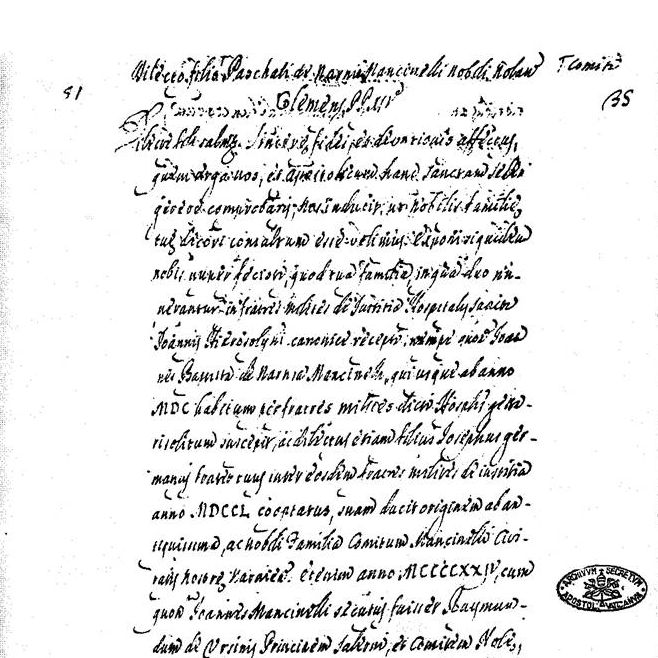 Dilecto filio Paschali de Narnia Mancinelli nobili Nolano Comiti
81
135
Clemens PP. XIII
Dilecte fili salutem. Sinceræ fidei, et devotionis affectus,
quem erga nos, et Apostolicam hanc Sanctam Sedem
gerere comprobaris, nos inducit, ut nobilis familiæ
tuæ decori consultum esse velimus. Exponi siquidem
nobis nuper fecisti, quod tua familia, in qua duo nu-
merantur in fratres milites de Justitia Hospitalis Sancti
Joannis Hierosolym: canonice recepti, nempe quod Joan
nes Baptista de Narnia Mancinelli, qui usque ab anno
MDC habitum per fratres milites dicti Hosplis gesta-
ri solitum suscepit, ac dilectus etiam filius Josephus ger-
manus frater tuus inter eosdem fratres milites de iustitia
anno MDCCL cooptatus, suam ducit originem ab an-
tiquissima, ac nobili Familia Comitum Mancinelli Civi-
tatis nostræ Narniæ. etenim anno MCCCCXXIV, cum
quon Joannes Mancinelli secutus fuisset Raymun-
dum de Ursinis Principem Salerni, et Comitem Nolæ,
ARCHIVVM SECRETVM
APOSTOL. VATICANVM